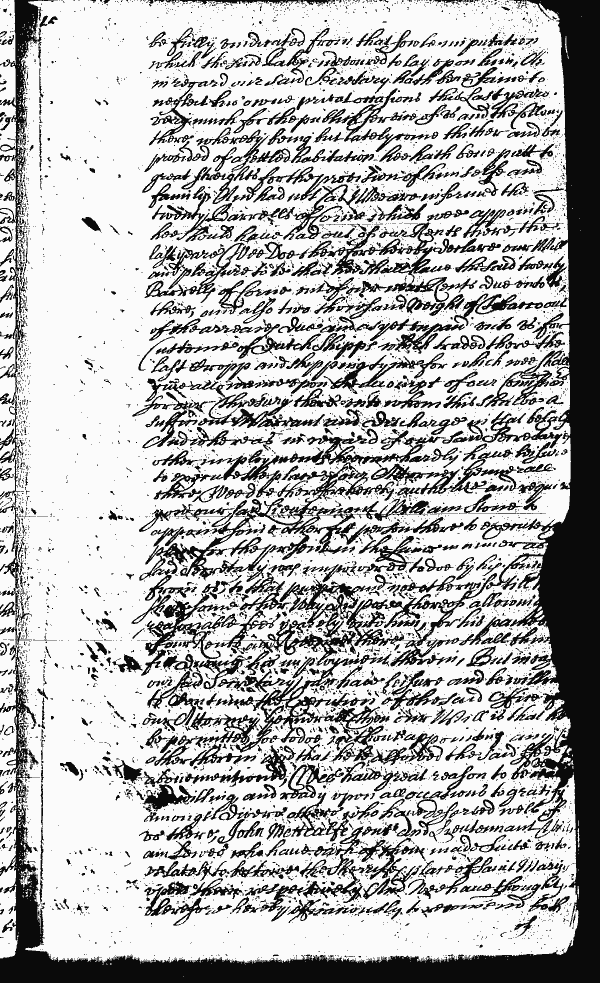 15
be fully vindicated from that fowle imputation
which the said Calvert endevoured to lay upon him, And
in regard our said Secretary hath been faine to
neglect his owne private occasions this last yeare
very much for the publick service of us and the
there, whereby being but lately come thither and un
provided of a settled habitation hee hath bene put to
great streights for the provision of himselfe and
family And had not (as Wee are informed) the
twenty Barrells of Corne which wee appointed
hee should have had out of our Rents there, the
last yeare, Wee Doe therefore hereby declare our Will
and pleasure to be that hee shall have the said twenty
Barrells of Corne out of our next Rents due unto us
there, and also two thousand weight of Tobacco out
of the arreares due and as yet unpaid unto us for
Custome of Dutch Shipps which traded there the
last Cropp and shipping tyme for which wee shall
give allowance upon the accompt of our
for our Threasury there unto whom this shal be a
sufficient Warrant and discharge in that behalfe
And whereas in regard of our said Secretaryes
other imployments hee can hardly have leisure
to execute the place of our Attorney Generall
there, Wee doe therefore hereby authorize and require
you our said Lieutennant William Stone to
appoint some other fit person there to execute
place for the present in the same manner as
said Secretary was impowered to doe by his
from us to that purpose and not otherwise till
some other thereof allowing
reasonable fees yearely unto him, for his paines
of our Rents and Revenues there, as you shall think
fit during his imployment therein, But
our said Secretary can have leisure and be willing
to Continue the execution of the said Office of
our Attorney Generall then our Will is that he
be permitted soe to doe without appointing any
other therein and that he be allowed the said
abovementioned, Wee have great reason to be
willing and ready upon all occasions to gratify
amongst divers others who have deserved well of
us there, John Metcalfe gent and Lieutennant
am Lewes who have each of them made suite unto
us lately to bestowe the Sheriffes place of Saint Maryes
upon them respectively And Wee have thought
therefore hereby affectionately to recommend both
of